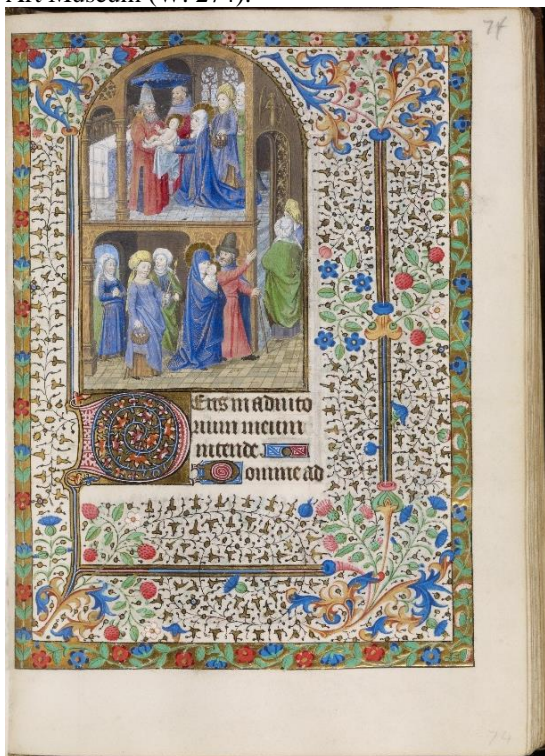 Art Museum (W. 274).
74
Deus in adiuto
rium meum
intende.
Domine ad
74